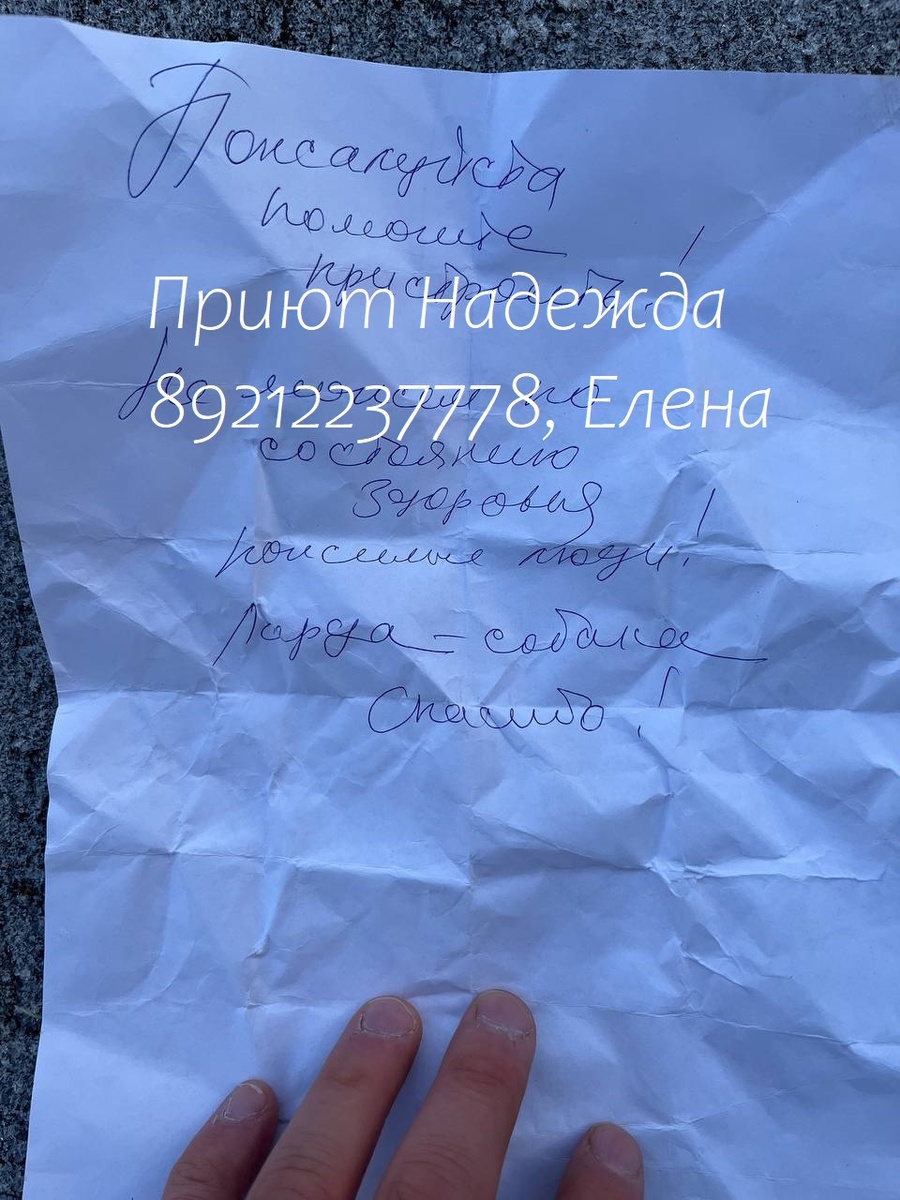 Пожалуйста
помогите
пристроить!
Приют Надежда
89212237778, Елена
по
состоянию
здоровья
пожилые люди!
Лорда – собака
Спасибо!